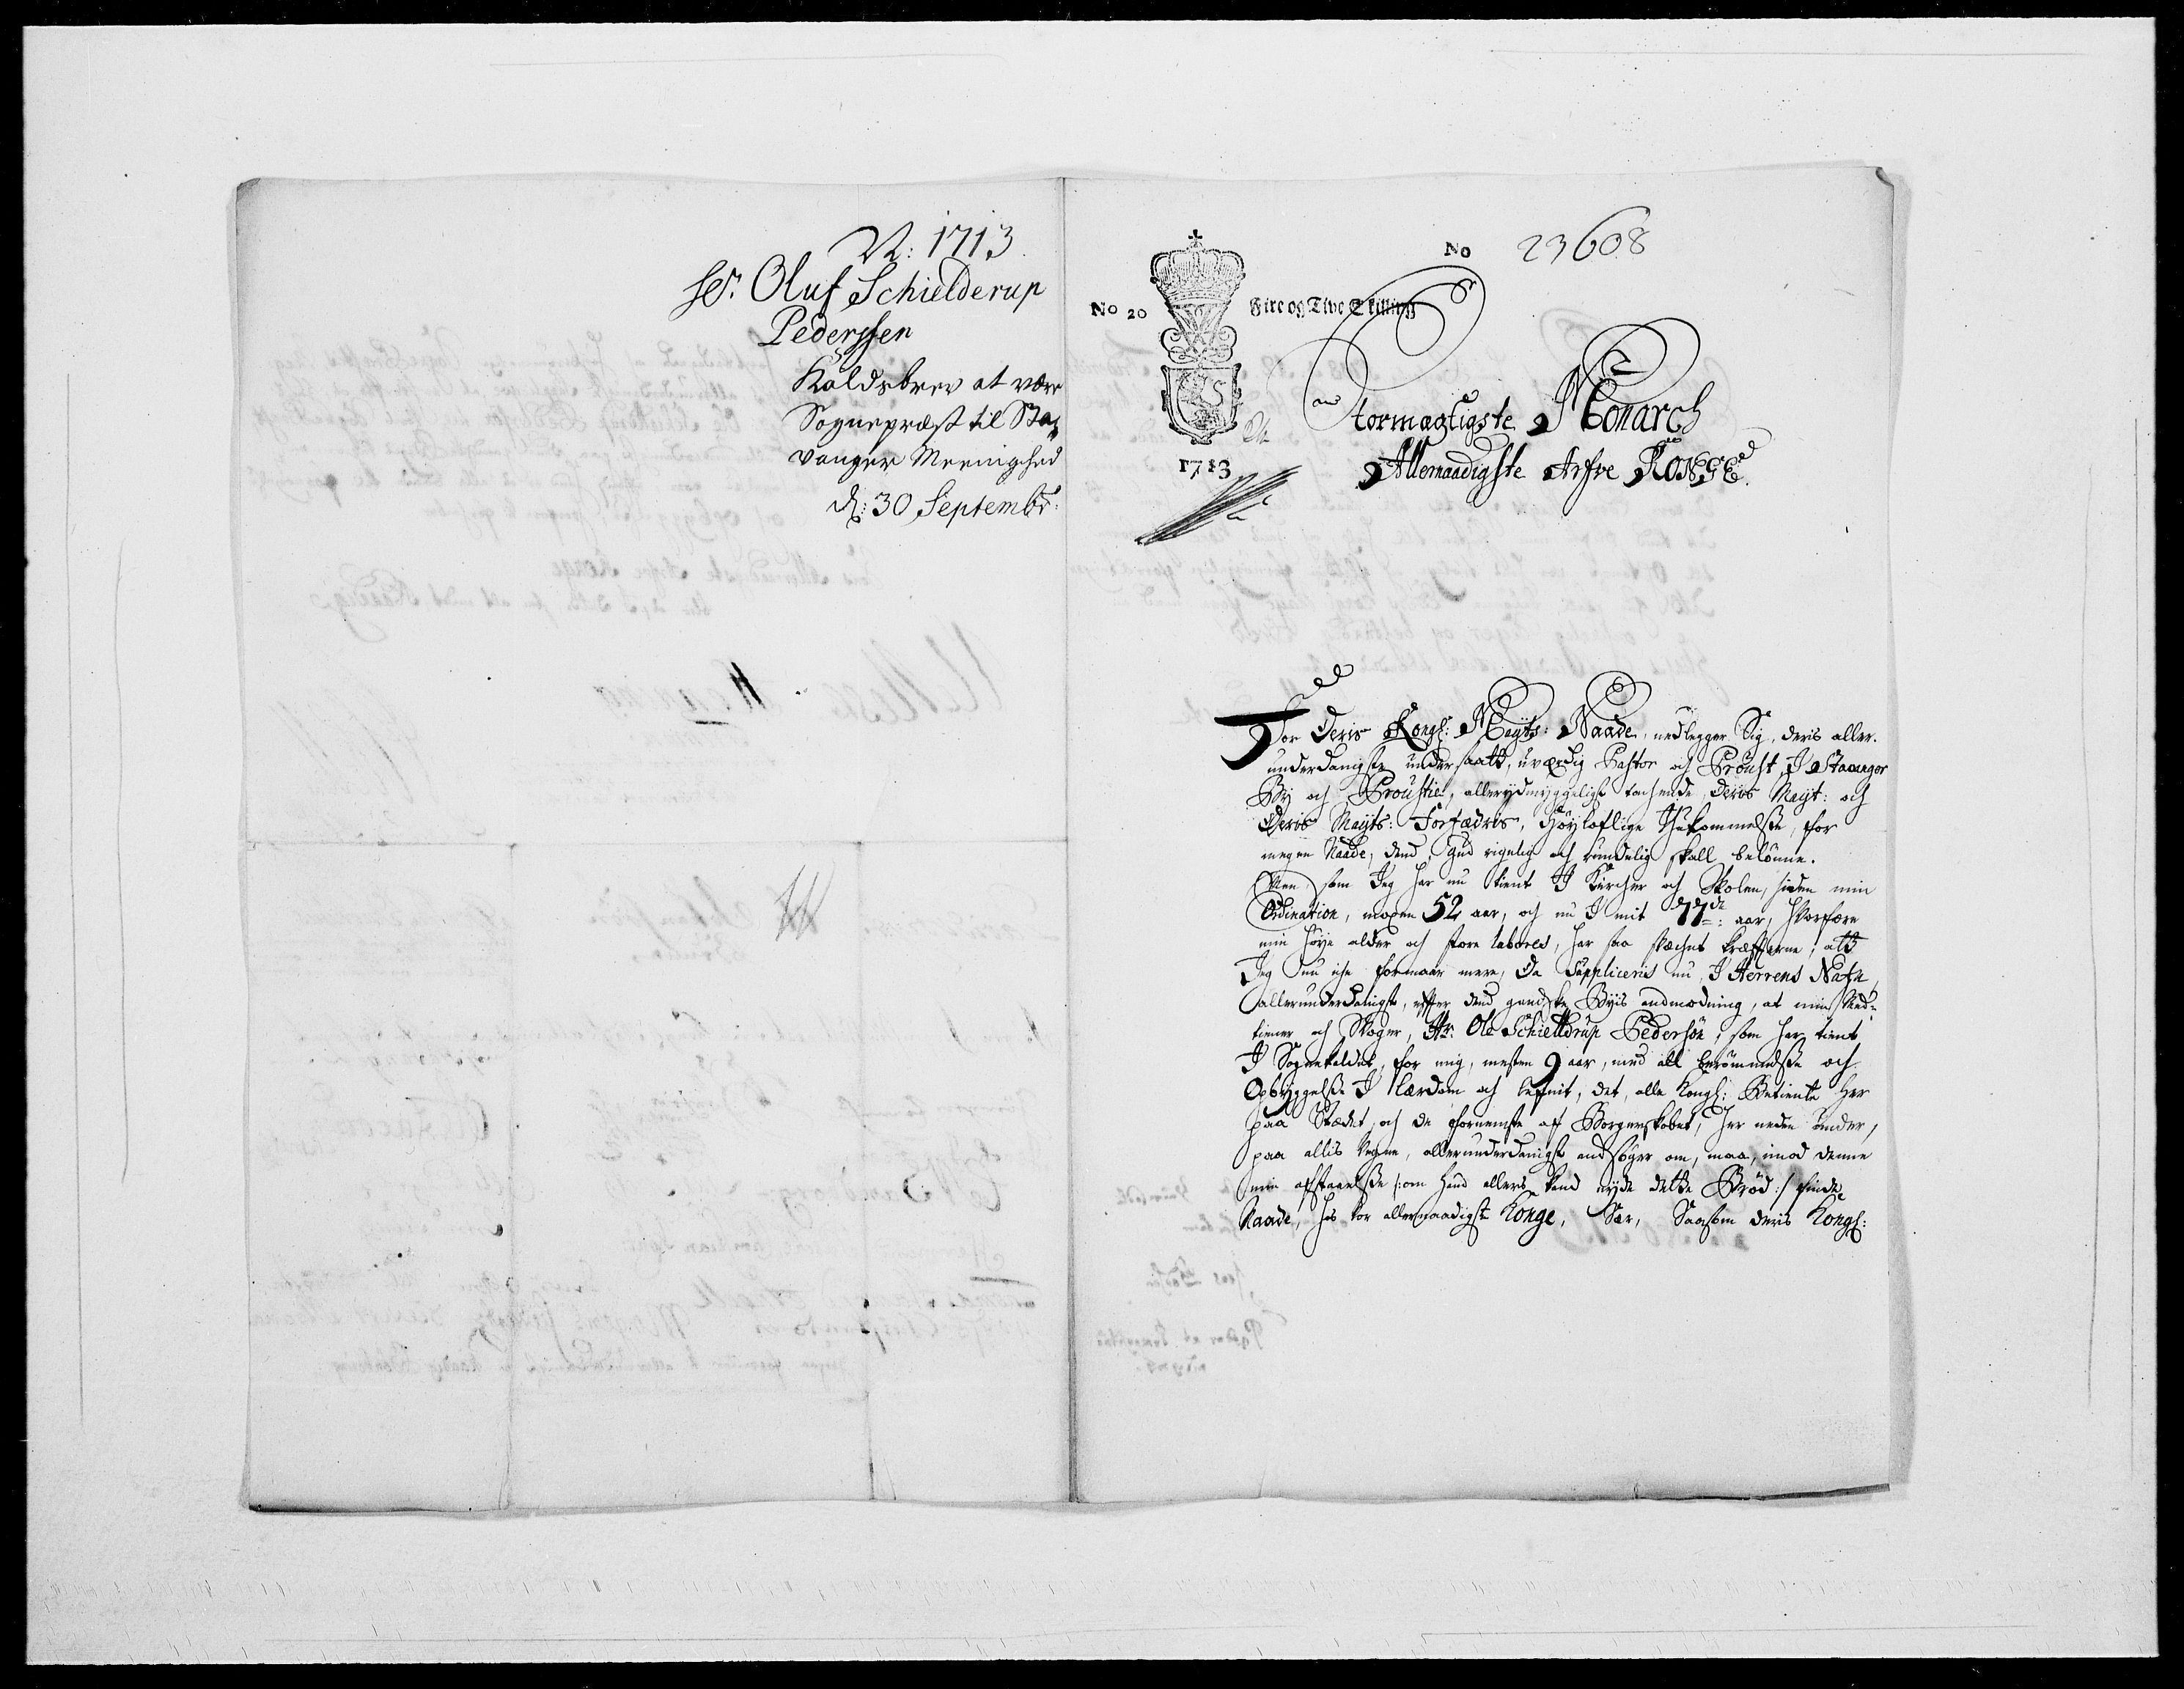 N: 1713.
Hr. Oluf Schielderup
Pederssen
Kaldsbrev at være
Sognepræst til Sta,
vanger Meenighed
d: 30 Septembr:
No 23608
No 20
Fire og Tive Skilling
1713
Stormægtigste Monarch
Allernaadigste Arfve KONGE.
For Deris Kongl: Mayts: Naade, nedlegger Sig, deris aller-
underdanigste undersaatt, uværdig Pastor och Proust, I Stavanger
By och Proustie, allerydmyggeligst tachende, Deris Mayt: och
Deris Mayts: Forfædris, Høyloflige Ihukommelsse, for
megen Naade, dend Gud rigelig och rundelig skall belønne.
Men som Jeg har nu tient I Kircher och Skolen, siden min
Ordination, moxen 52 aar, och nu I mit 77de: aar, hvorfore
min høye alder och store labores, har saa svæchet kræfterne, att
Jeg nu iche formaar mere, Da Suppliceris nu, I Herrens Nafn,
allerunderdanigst, efter dend gandske Byis andmodning, at min Med-
tiener och Mager, Hr: Ole Schielldrup Pedersøn, som har tient
I Sognekaldet, for mig, mesten 9 aar, med all berømmelsse och
Opbyggelsse I Lærdom och lefnit, det, alle Kongl: Betiente her
paa Stædet, och de fornemste af Borgerskabet, her neden under,
paa allis Vegne, allerunderdanigst andsøger om, maa, imod denne
min afstaaelsse /:om hand ellers kand nyde dette Brød:/ finde
Naade, hos vor allernaadigste Konge, Saasom deris Kongl: